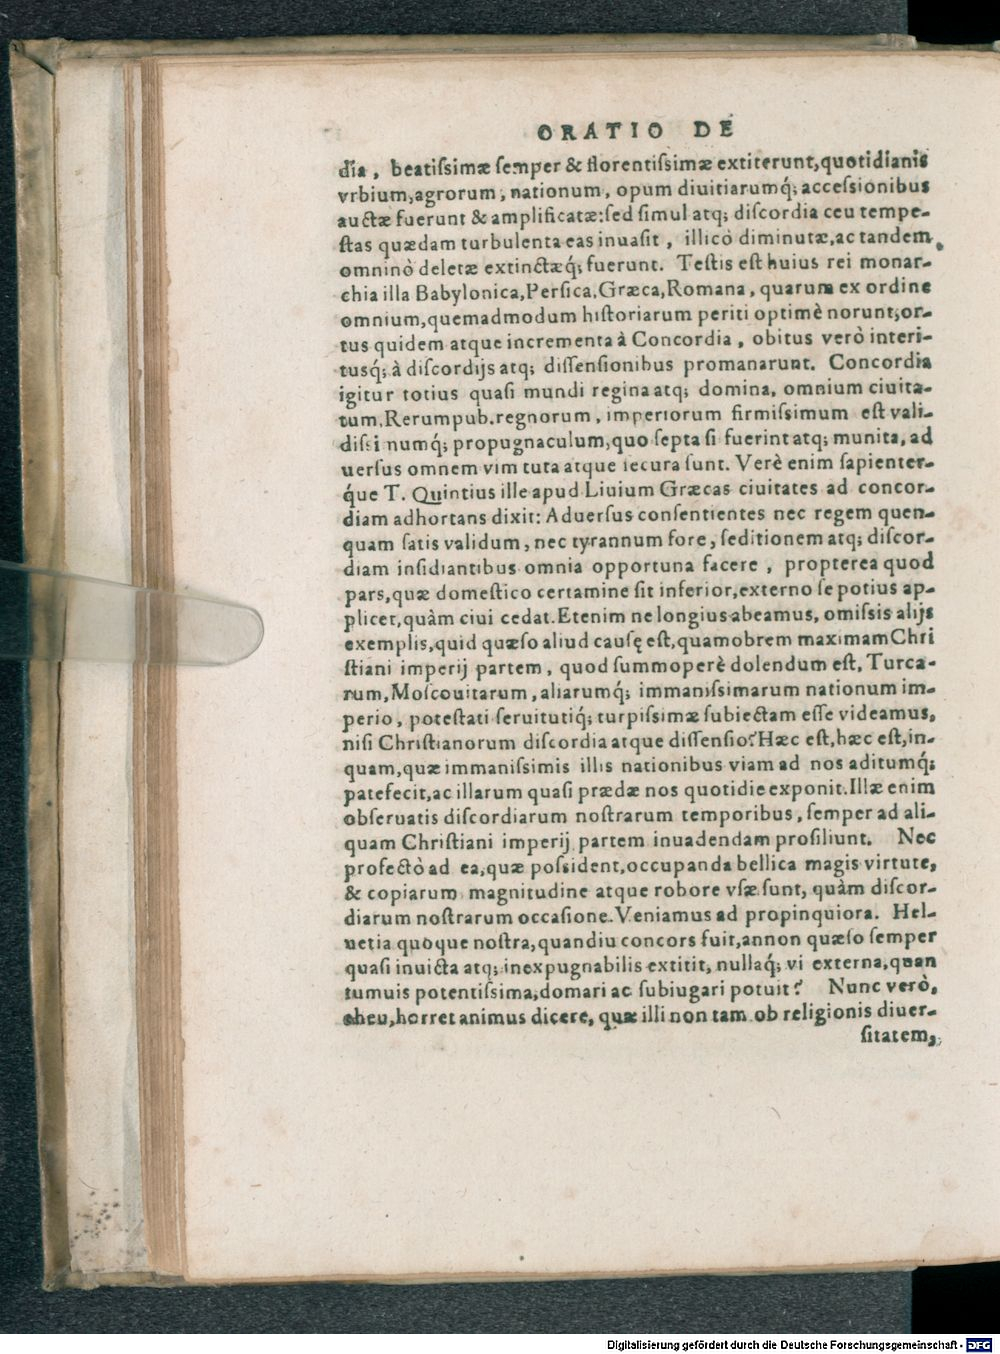 ORATIO DE
dia, beatiſsimæ ſemper & florentiſsimæ extiterunt, quotidianis
vrbium, agrorum, nationum, opum diuitiarumq́; acceſsionibus
auctæ fuerunt & amplificatæ: ſed ſimul atq; diſcordia ceu tempe-
ſtas quædam turbulenta eas inuaſit, illicò diminutæ, ac tandem
omninò deletæ extinctæq́; fuerunt. Teſtis eſt huius rei monar-
chia illa Babylonica, Perſica, Græca, Romana, quarum ex ordine
omnium, quemadmodum hiſtoriarum periti optimè norunt; or-
tus quidem atque incrementa à Concordia, obitus verò interi-
tusq́; à diſcordijs atq; diſſenſionibus promanarunt. Concordia
igitur totius quaſi mundi regina atq; domina, omnium ciuita-
tum, Rerumpub. regnorum, imperiorum firmiſsimum eſt vali-
diſsimumq́; propugnaculum, quo ſepta ſi fuerint atq; munita, ad
uerſus omnem vim tuta atque ſecura ſunt. Verè enim ſapienter-
q́ue T. Quintius ille apud Liuium Græcas ciuitates ad concor-
diam adhortans dixit: Aduerſus conſentientes nec regem quen-
quam ſatis validum, nec tyrannum fore, ſeditionem atq; diſcor-
diam inſidiantibus omnia opportuna facere, propterea quod
pars, quæ domeſtico certamine ſit inferior, externo ſe potius ap-
plicet, quàm ciui cedat. Etenim ne longius abeamus, omiſsis alijs
exemplis, quid quæſo aliud cauſę eſt, quamobrem maximam Chri
ſtiani imperij partem, quod ſummoperè dolendum eſt, Turca-
rum, Moſcouitarum, aliarumq́; immaniſsimarum nationum im-
perio, poteſtati ſeruitutiq́; turpiſsimæ ſubiectam eſſe videamus,
niſi Chriſtianorum diſcordia atque diſſenſio? Hæc eſt, hæc eſt, in-
quam, quæ immaniſsimis illis nationibus viam ad nos aditumq́;
patefecit, ac illarum quaſi prædæ nos quotidie exponit. Illæ enim
obſeruatis diſcordiarum noſtrarum temporibus, ſemper ad ali-
quam Chriſtiani imperij partem inuadendam proſiliunt. Nec
profectò ad ea, quæ poſsident, occupanda bellica magis virtute,
& copiarum magnitudine atque robore vſæ ſunt, quàm diſcor-
diarum noſtrarum occaſione. Veniamus ad propinquiora. Hel-
uetia quoque noſtra, quandiu concors fuit, annon quæſo ſemper
quaſi inuicta atq; inexpugnabilis extitit, nullaq́; vi externa, quan
tumuis potentiſsima, domari ac ſubiugari potuit? Nunc verò,
eheu, horret animus dicere, quæ illi non tam ob religionis diuer-
ſitatem,
Digitalisierung gefördert durch die Deutsche Forschungsgemeinschaft - DFG